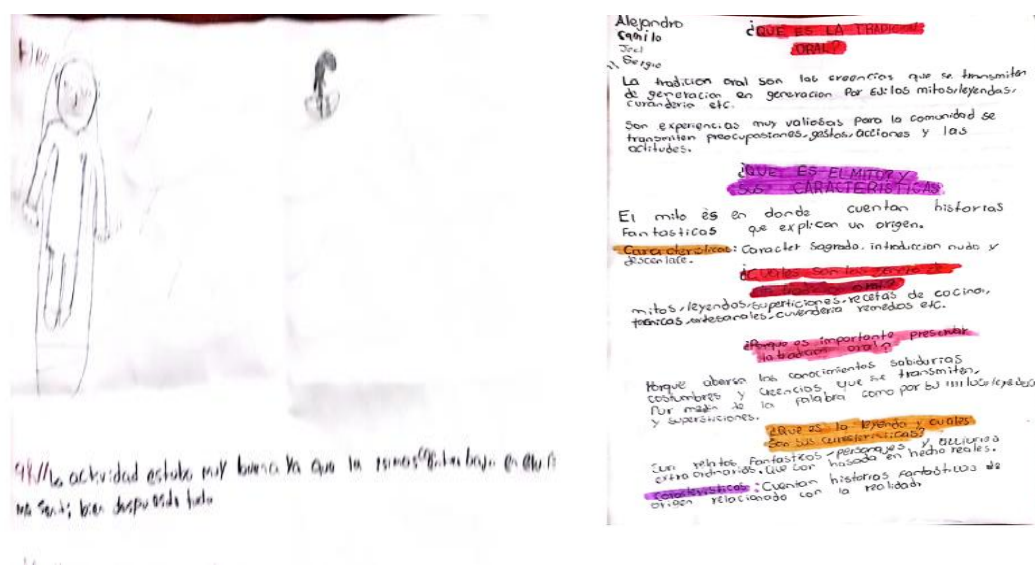 La actividad estubo muy buena ya que la
me sentí bien después de todo
Alejandro
Camilo
Joel
Sergio
¿QUE ES LA TRADICION
ORAL?
La tradicion oral son las creencias que se transmiten
de generacion en generacion Por EJ: los mitos, leyendas,
curanderia etc.
Son experiencias muy valiosas para la comunidad se
transmiten preocupasiones, gestos, acciones y las
actitudes.
¿QUE ES EL MITO? Y
SUS CARACTERISTICAS
El mito es en donde cuentan historias
Fantasticas que explican un origen.
Caracteristicas: Caracter Sagrado, introduccion nudo y
descenlace.
¿Cuales son los genero de
la tradicion oral?
mitos, leyendas, superticiones, recetas de cocina,
tecnicas artesanales, curenderia remedios etc.
¿Porque es importante preservar
la tradicion oral?
Porque aberca los conocimientos sabidurias
costumbres y creencias, que se transmiten,
Por medio de la palabra como por EJ
y supersticiones.
¿Que es la leyenda y cuales
son sus caracteristicas?
Son relatos Fantasticos, personajes, y acciones
extraordinarias. Que son basada en hecho reales.
Caracteristicas: Cuentan historias fantasticas de
origen relacionado con la realidad.